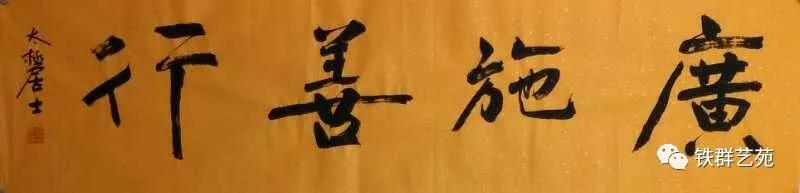 廣施善行
太極居士
铁群艺苑